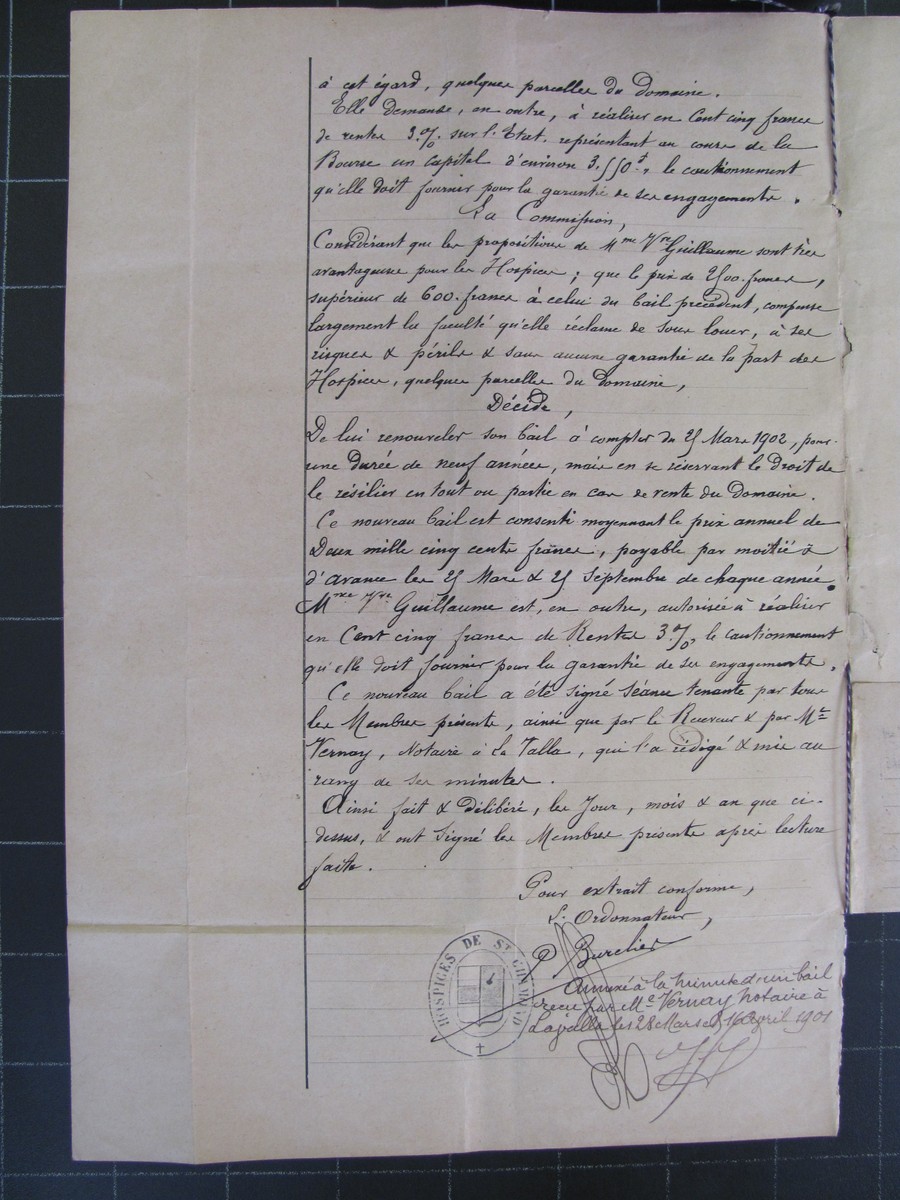 à cet égard, quelques parcelles du Domaine.
Elle demande, en outre, à réaliser en Cent cinq francs
de rente 3% sur l'Etat, représentant au cours de la
Bourse un capital d'environ 3.550f, le cautionnement
qu'elle doit fournir pour la garantie de ses engagements.
La Commission,
Considérant que les propositions de Mme Vve Guillaume sont très
avantageuses pour les Hospices; que le prix de 2500 francs,
supérieur de 600 francs à celui du bail précédent, compense
largement la faculté qu'elle réclame de sous louer, à ses
risques & périls & sans aucune garantie de la part des
Hospices, quelques parcelles du Domaine,
Décide,
De lui renouveler son bail à compter du 25 Mars 1902, pour
une durée de neuf années, mais en se réservant le droit de
le résilier en tout ou partie en cas de vente du Domaine.
Ce nouveau bail est consenti moyennant le prix annuel de
Deux mille cinq cents francs, payable par moitié &
d'avance les 25 Mars & 25 Septembre de chaque année.
Mme Vve Guillaume est, en outre, autorisée à réaliser
en Cent cinq francs de Rentes 3%, le cautionnement
qu'elle doit fournir pour la garantie de ses engagements.
Ce nouveau bail a été signé séance tenante par tous
les Membres présents, ainsi que par le Receveur & par Me
Vernay, Notaire à La Valla, qui l'a rédigé & mis au
rang de ses minutes.
Ainsi fait & délibéré, les Jour, mois & an que ci-
dessus, & ont signé les Membres présents après lecture
faite.
Pour extrait conforme,
L'Ordonnateur,
P Burelier
HOSPICES DE St CHAMOND
Annexé à la minute d'un bail
reçu par Me Vernay notaire à
Lavalla les 28 Mars et 16 Avril 1901